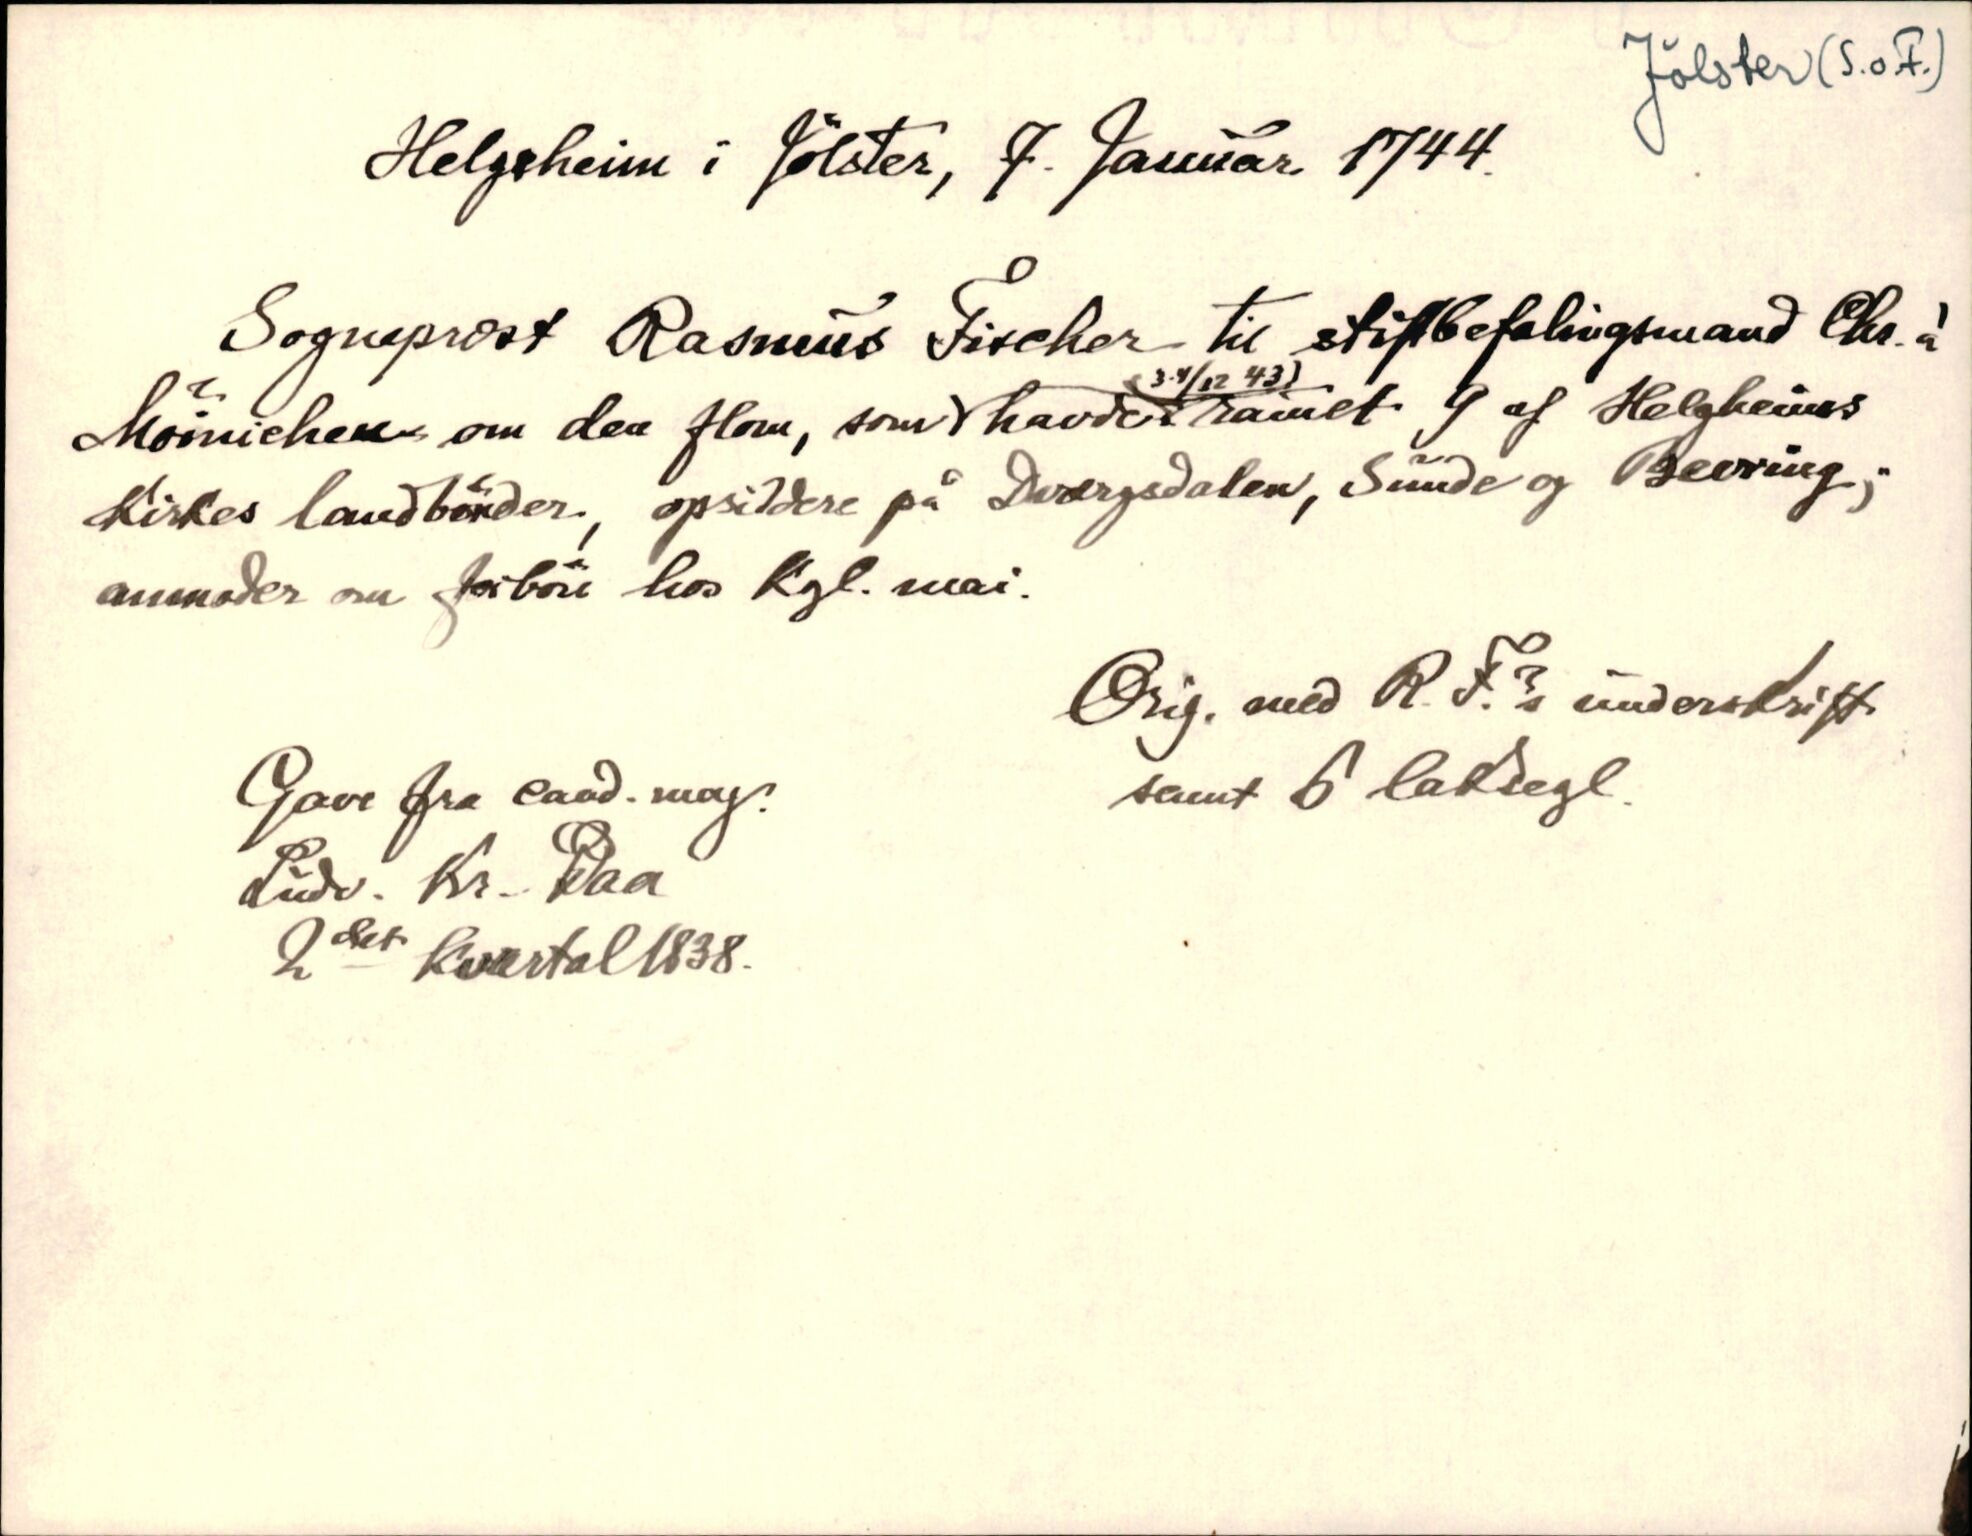 Jölster (S.o.F.)
Helgeheim i Jölster, 7. Januar 1744.
Sogneprest Rasmus Fischer til stiftbefalingsmand Chr. à
Möinichen om den flom, som havde (3-4/12 43) ramet 9 af Helgheims
Kirkes landbönder, opsiddere på Dvergsdalen, Sunde og Bevring;
anmoder om forbön hos Kgl. mai.
Orig. med R. F.'s underskrift
samt 6 laksegl.
Gave fra cand. mag.
Ludv. Kr. Daa
2det kvartal 1838.